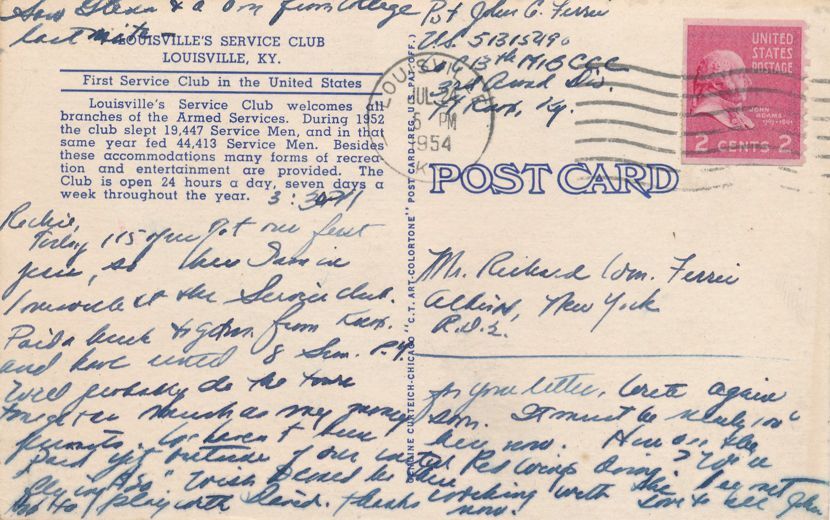 from College
last nite -
LOUISVILLE'S SERVICE CLUB
LOUISVILLE, KY.
First Service Club in the United States
Louisville's Service Club welcomes all
branches of the Armed Services. During 1952
the club slept 19,447 Service Men, and in that
same year fed 44,413 Service Men. Besides
these accommodations many forms of recrea-
tion and entertainment are provided. The
Club is open 24 hours a day, seven days a
week throughout the year.
3:30
Richie,
Today 1:15 our first
so here I am in
Louisville at the Service Club.
Paid a buck to get in from Knox.
and have until 8 Sun. P.M.
Will probably do the town
tonite as much as my money
permits. haven't been
paid yet outside of our
Wish I could be there
to play with David. thanks
for your letter. Write again
son. It must be nearly 100°
here now. How are the
Red Wings doing?
working with the
now. Love to all John
GENUINE CURTEICH-CHICAGO "C.T. ART-COLORTONE" POST CARD (REG. U.S. PAT. OFF.)
Pvt John C. Ferris
US 51315490
3rd Armd Div.
Ft Knox, Ky.
LOUISVILLE
JUL 24
5 PM
1954
KY
UNITED
STATES
POSTAGE
JOHN
ADAMS
1797-1801
2 CENTS 2
POST CARD
Mr. Richard Wm. Ferris
Albion, New York
R.D.2.